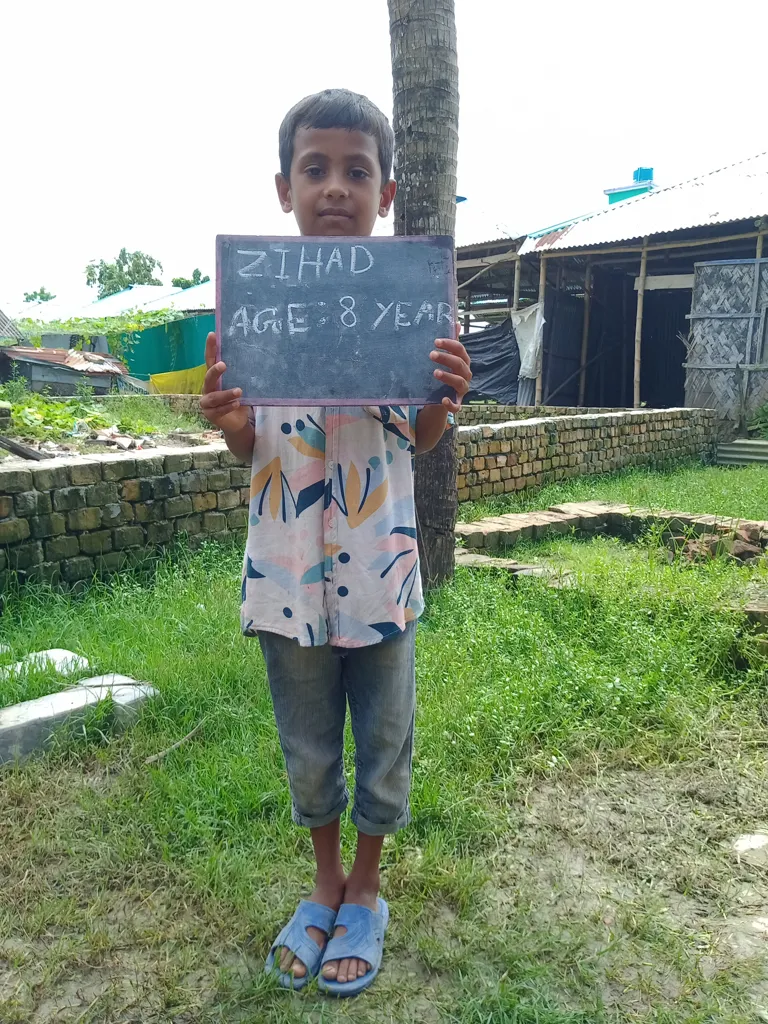 ZIHAD
AGE: 8 YEAR